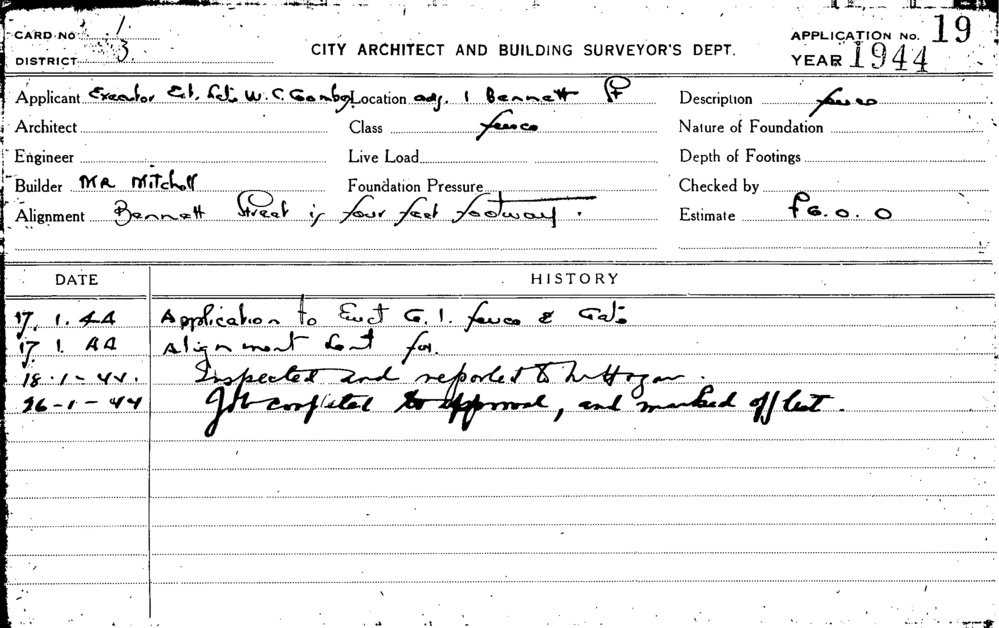 CARD No 1
DISTRICT 3.
CITY ARCHITECT AND BUILDING SURVEYOR'S DEPT.
APPLICATION No. 19
YEAR 1944
Applicant Executor Est. Late W. C. Location adj. 1 Bennett St Description fence
Architect Class fence Nature of Foundation
Engineer Live Load Depth of Footings
Builder Mr Mitchell Foundation Pressure Checked by
Alignment Bennett Street is four feet footway. Estimate £6. 0. 0
DATE HISTORY
17. 1. 44 Application to Erect G. I. fence & Gate
17. 1. 44 Alignment sent for.
18-1-44. Inspected and reported to Mr Hogan.
26-1-44 Job completed to approval, and marked off list.